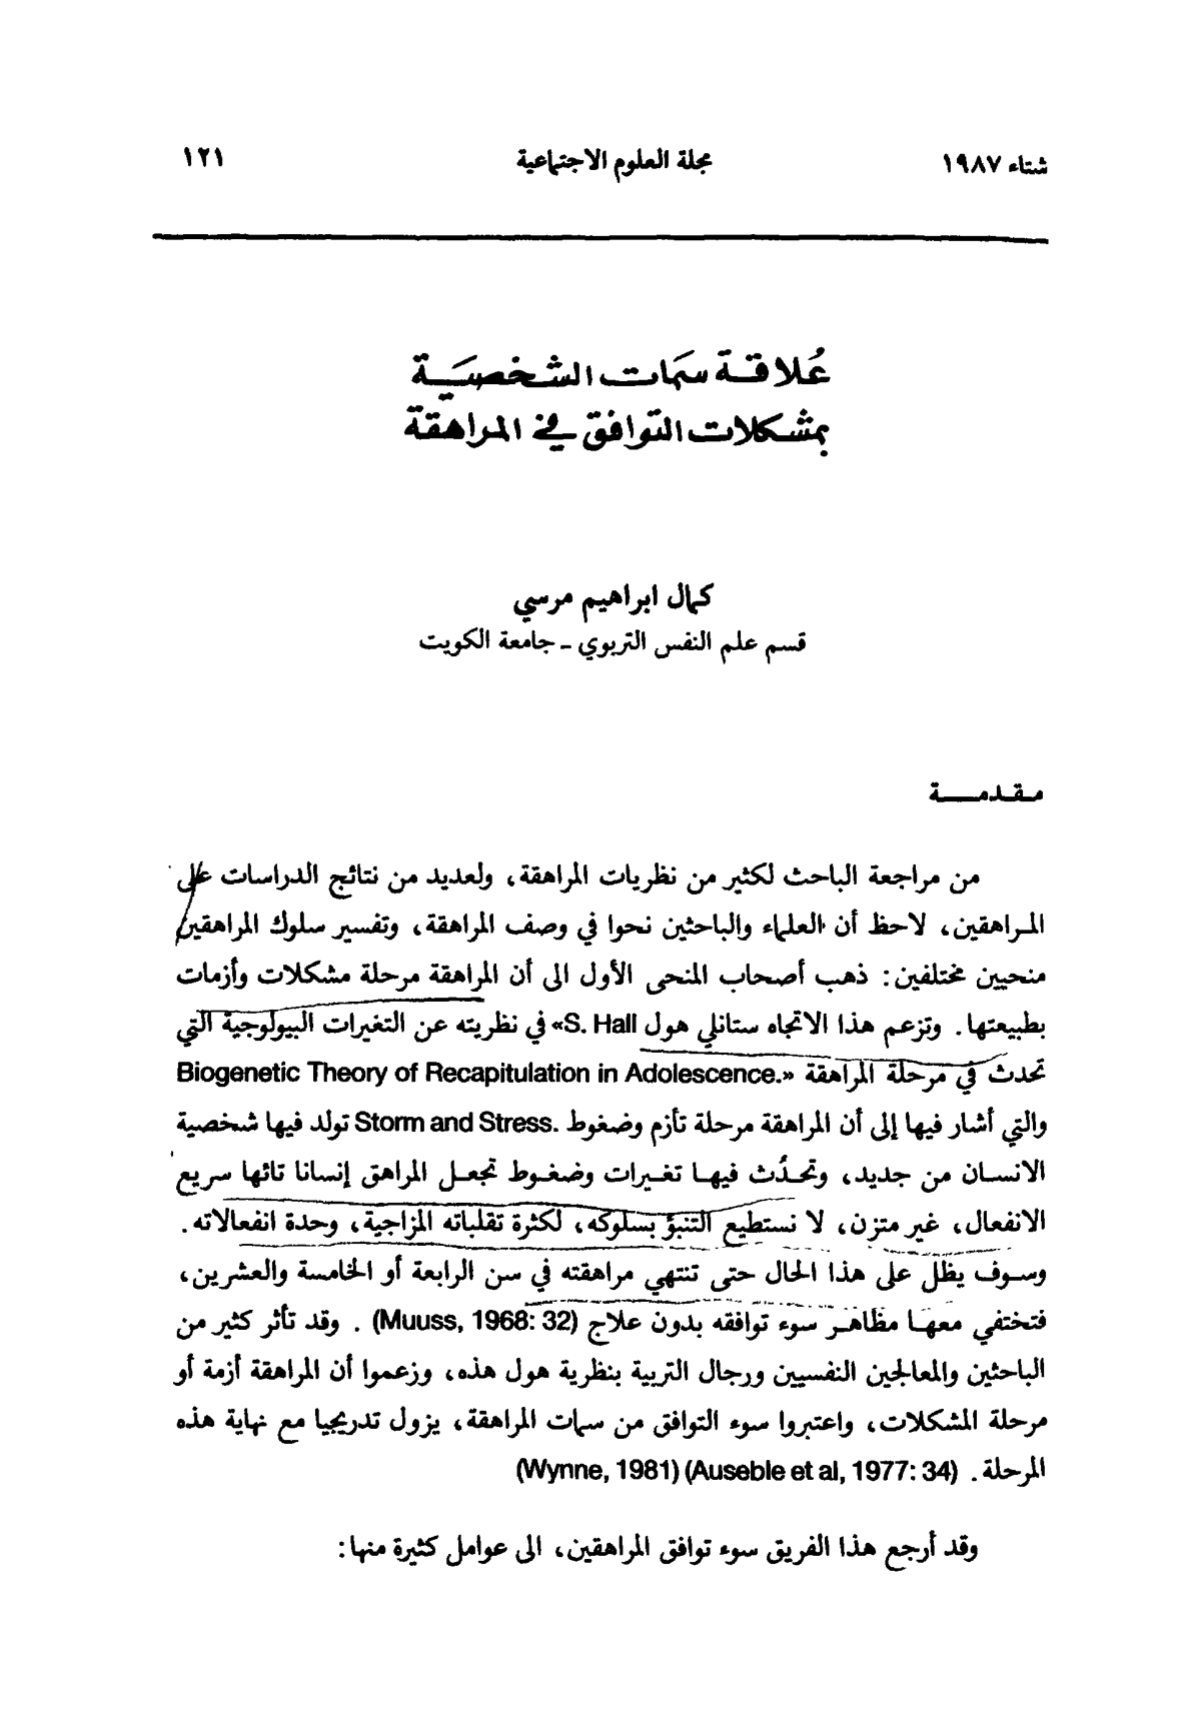 شتاء ١٩٨٧ مجلة العلوم الاجتماعية ١٢١
عُلاقة سَمات الشخصيَة
بمشكلات التوافق في المراهقة
كمال ابراهيم مرسي
قسم علم النفس التربوي ـ جامعة الكويت
مقدمة
من مراجعة الباحث لكثير من نظريات المراهقة، ولعديد من نتائج الدراسات على
المراهقين، لاحظ أن العلماء والباحثين نحوا في وصف المراهقة، وتفسير سلوك المراهقين
منحيين مختلفين: ذهب أصحاب المنحى الأول الى أن المراهقة مرحلة مشكلات وأزمات
بطبيعتها. وتزعم هذا الاتجاه ستانلي هول S. Hall» في نظريته عن التغيرات البيولوجية التي
تحدث في مرحلة المراهقة «Biogenetic Theory of Recapitulation in Adolescence.
والتي أشار فيها إلى أن المراهقة مرحلة تأزم وضغوط Storm and Stress. تولد فيها شخصية
الانسان من جديد، وتحدُث فيها تغيرات وضغوط تجعل المراهق إنسانا تائها سريع
الانفعال، غير متزن، لا نستطيع التنبؤ بسلوكه، لكثرة تقلباته المزاجية، وحدة انفعالاته.
وسوف يظل على هذا الحال حتى تنتهي مراهقته في سن الرابعة أو الخامسة والعشرين،
فتختفي معها مظاهر سوء توافقه بدون علاج (Muuss, 1968: 32) . وقد تأثر كثير من
الباحثين والمعالجين النفسيين ورجال التربية بنظرية هول هذه، وزعموا أن المراهقة أزمة أو
مرحلة المشكلات، واعتبروا سوء التوافق من سمات المراهقة، يزول تدريجيا مع نهاية هذه
المرحلة. (Auseble et al, 1977: 34) (Wynne, 1981)
وقد أرجع هذا الفريق سوء توافق المراهقين، الى عوامل كثيرة منها: